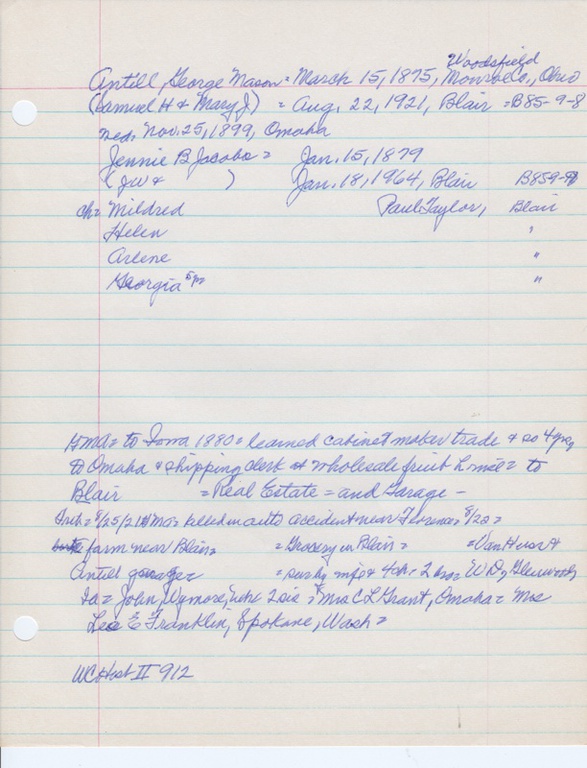 Woodsfield
Antill, George Mason = March 15, 1875, Monroe Co., Ohio
(Samuel H & Mary J) = Aug. 22, 1921, Blair = B85-9-8
med. Nov. 25, 1899, Omaha
Jennie B Jacobs = Jan. 15, 1879
(JW & ) Jan. 18, 1964, Blair B859-9
ch = Mildred Paul Taylor, Blair
Helen "
Arlene "
Georgia "
to Iowa 1880 = learned cabinet maker trade & so 4 yrs
to Omaha & shipping clerk at wholesale fruit = to
Blair = Real Estate = and Garage -
8/25/21 = killed in auto accident near Florence = 8/20 =
farm near Blair = = Grocery in Blair = = Van Horn &
Antill garage = = surv by wife & 4 ch - 2 bro = W D, Glenwood
Ia = John, Wymore, Nebr 2 sis = Mrs C L Grant, Omaha = Mrs
Leo E Franklin, Spokane, Wash =
WC Hist II 912